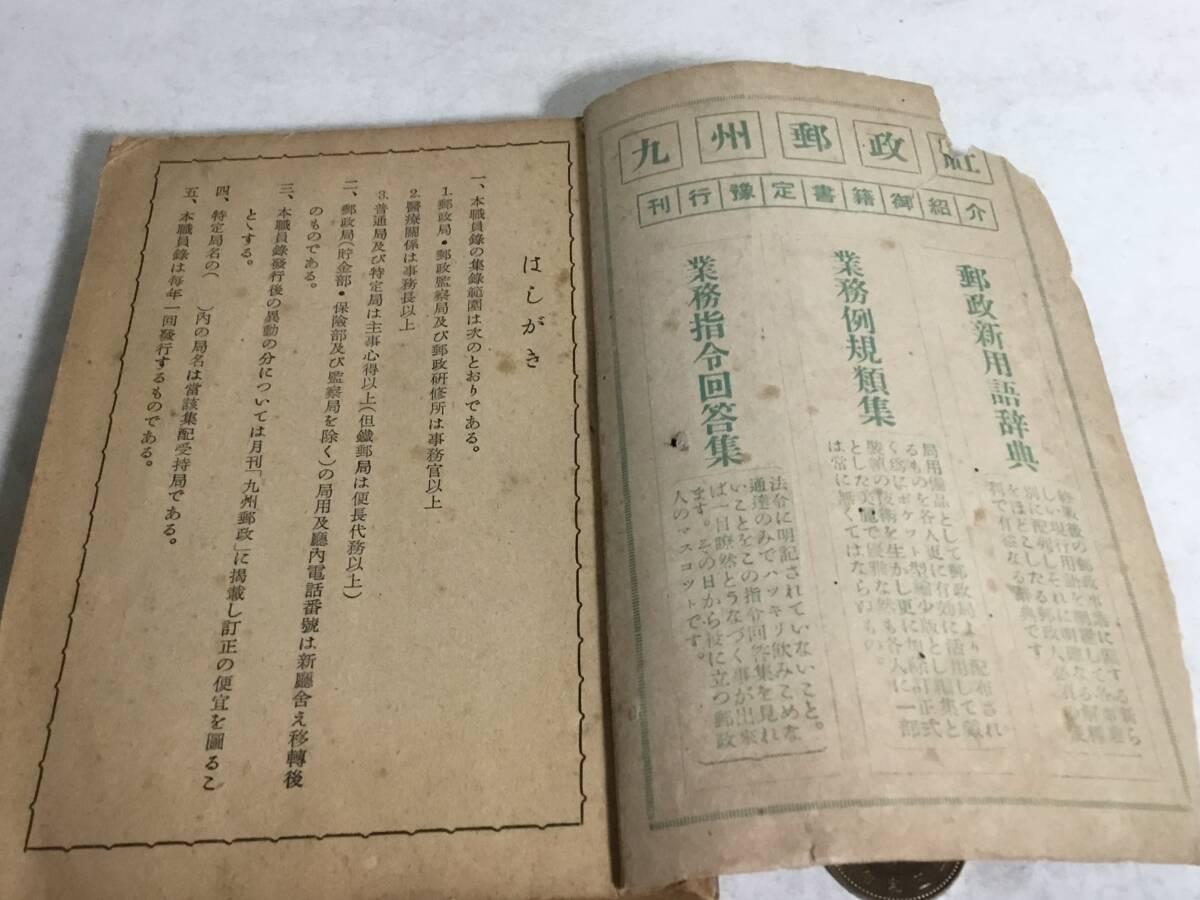 九州郵政
刊行豫定書籍御紹介
郵政新用語辞典
業務例規類集
局用備品として郵政局より配布され
るものを各人更に有効に活用して戴
く為にポケット型縮少版とし
は常に無くてはならぬもの。
業務指令回答集
法令に明記されていないこと。
通達のみでハッキリ飲みこめな
いことをこの指令回答集を見れ
ば一目瞭然とうなづく事が出来
ます。その日から役に立つ郵政
人のマスコットです。
はしがき
一、本職員錄の集錄範圍は次のとおりである。
1.郵政局・郵政監察局及び郵政研修所は事務官以上
2.醫療關係は事務長以上
3.普通局及び特定局は主事心得以上(但鐵郵局は便長代務以上)
二、郵政局(貯金部・保險部及び監察局を除く)の局用及廳內電話番號は新廳舍え移轉後
のものである。
三、本職員錄發行後の異動の分については月刊「九州郵政」に揭載し訂正の便宜を圖るこ
とゝする。
四、特定局名の( )內の局名は當該集配受持局である。
五、本職員錄は每年一回發行するものである。